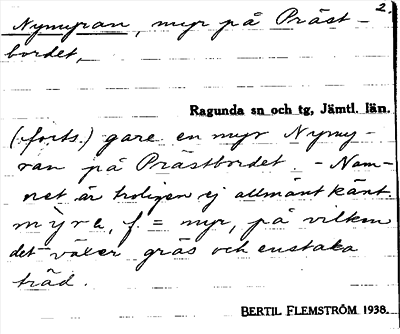 2.
Nymyran, myr på Präst-
bordet,
Ragunda sn och tg, Jämtl. län.
(forts.) gare en myr Nymy-
ran på Prästbordet. - Nam-
net är troligen ej allmänt känt
mỳra, f. = myr, på vilken
det växer gräs och enstaka
träd.
BERTIL FLEMSTRÖM 1938.